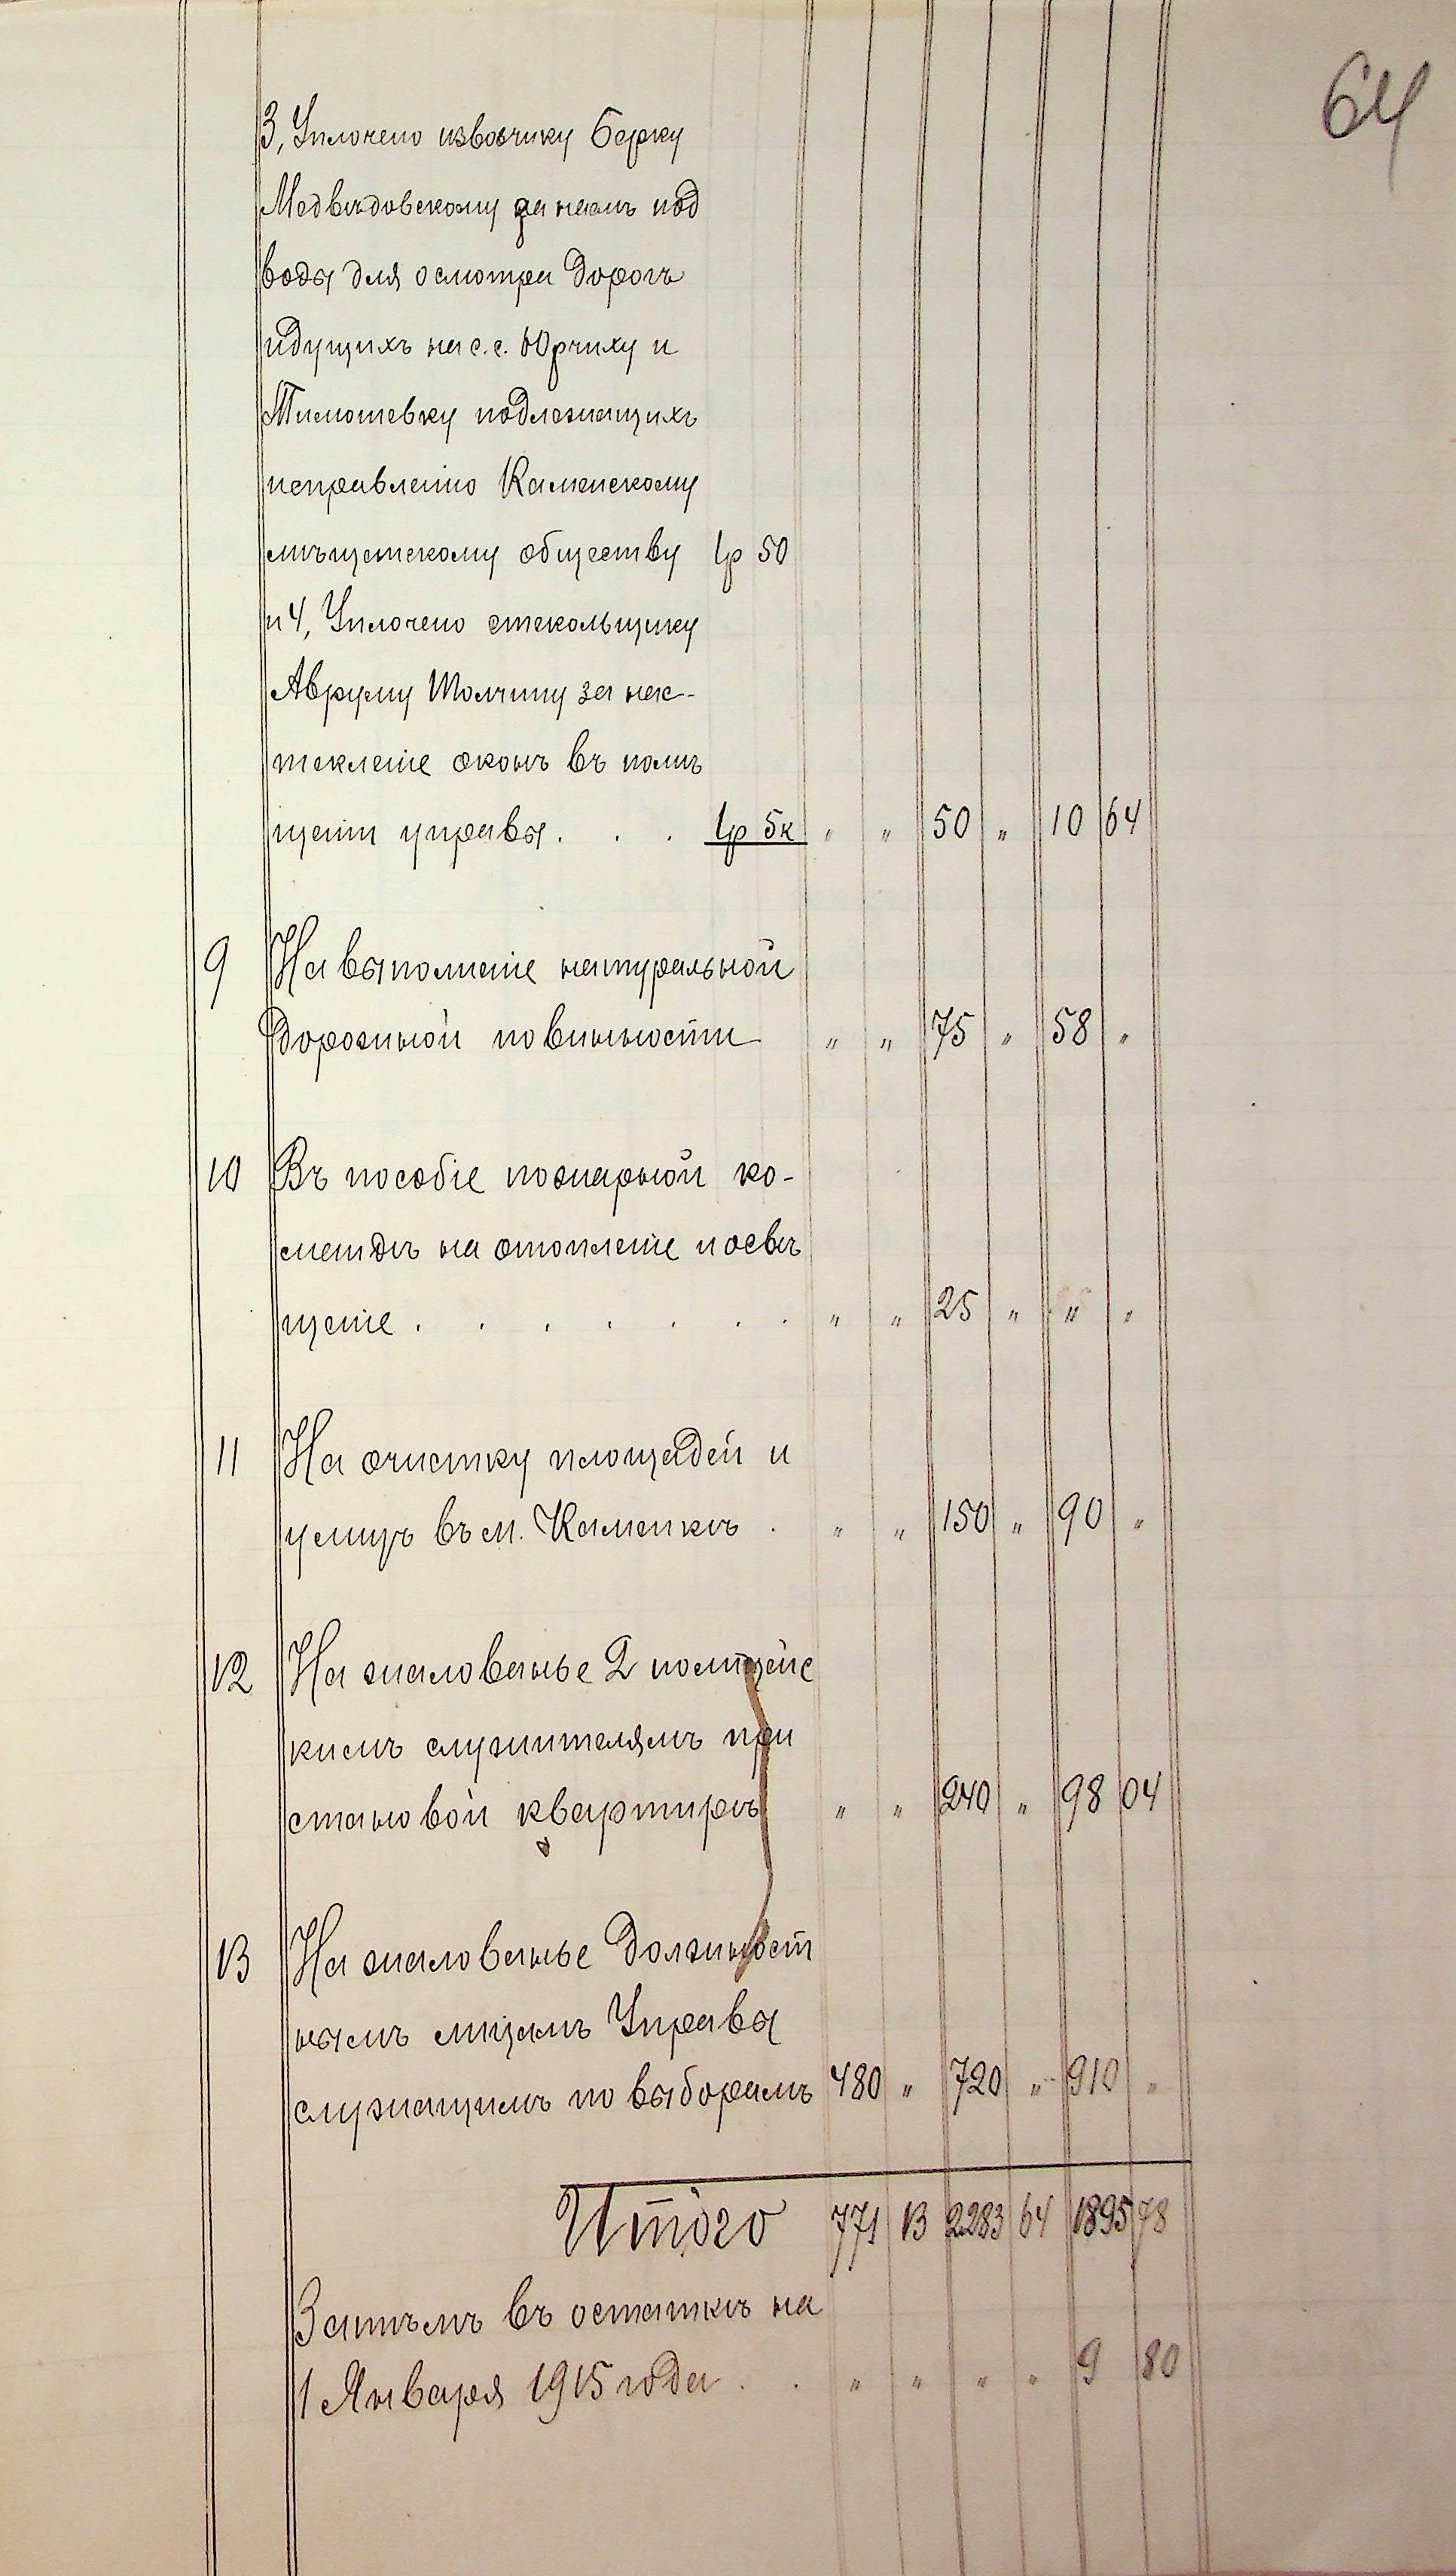 64
3, Уплочено извозчику Берку
Медвѣдовскому за наемъ под
воды для осмотра дорогъ
идущихъ на с.с. Юрчиху и
Тимошевку подлежащихъ
исправленію Каменскому
мѣщанскому обществу 1р 50
и 4, Уплочено стекольщику
Авруму Толчину за нас-
текленіе оконъ въ помѣ
щеніи управы . . . 1р 5к " " 50 " 10 64
9 На выполненіе натуральной
дорожной повинности " " 75 " 58 "
10 Въ пособіе пожарной ко-
мандѣ на отопленіе и освѣ
щеніе . . . . . . . " " 25 " " "
11 На очистку площадей и
улицъ въ м. Каменкѣ . " " 150 " 90 "
12 На жалованье 2 полицейс
кимъ служителямъ при
становой квартирѣ " " 240 " 98 04
13 На жалованье должност
нымъ лицамъ Управы
служащимъ по выборамъ 480 " 720 " 910 "
Итого 771 13 2283 64 1895 78
Затѣмъ въ остаткѣ на
1 Января 1915 года . . " " " " 9 80